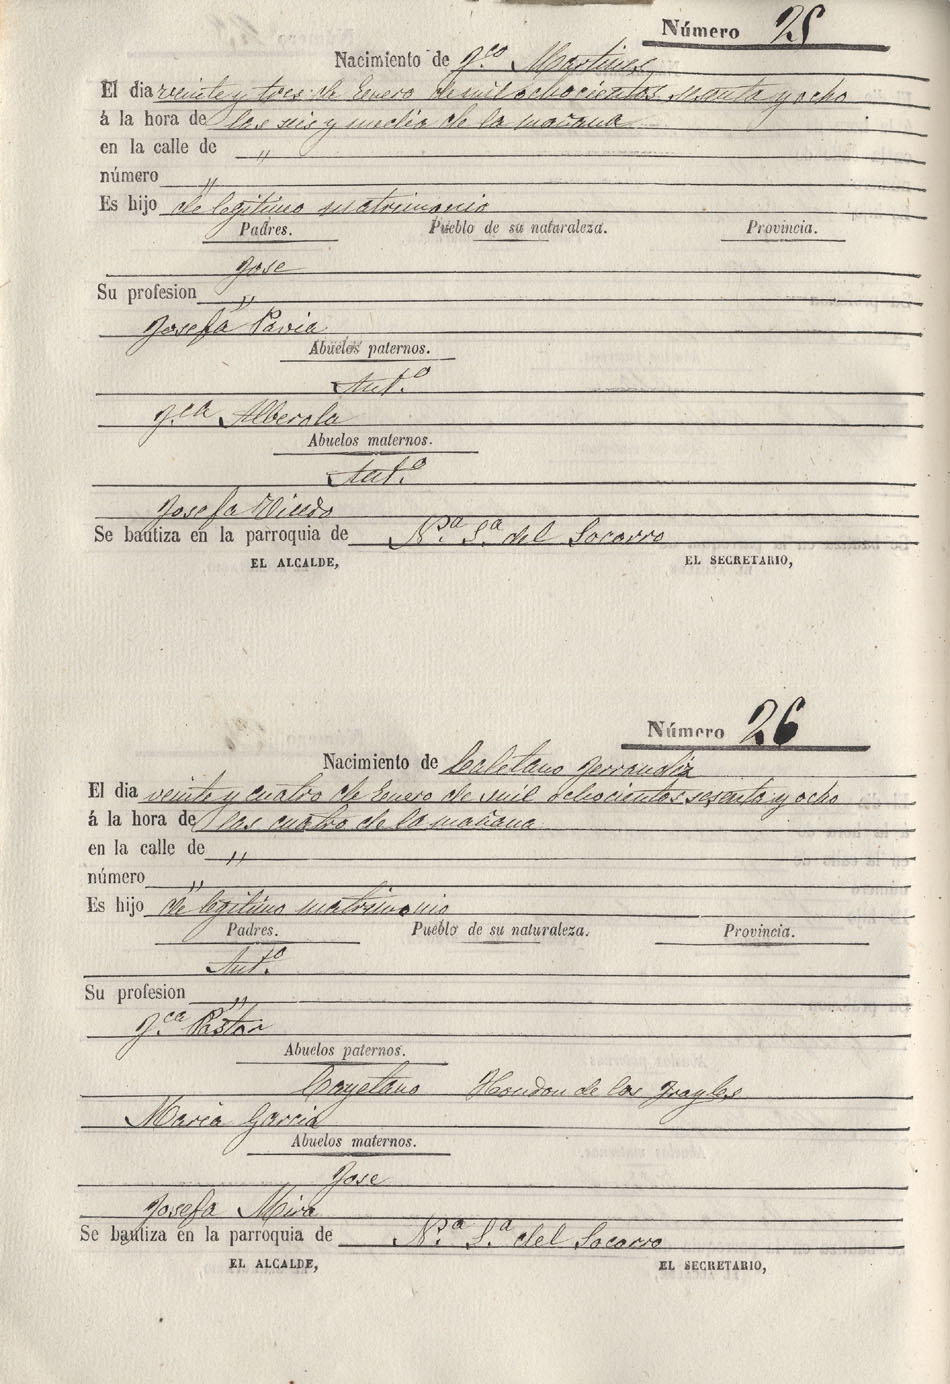 Número 25
Nacimiento de Fco Martines
El dia veinte y tres de Enero de mil ochocientos sesenta y ocho
á la hora de las seis y media de la mañana
en la calle de "
número "
Es hijo de legitimo matrimonio
Padres. Pueblo de su naturaleza. Provincia.
Jose
Su profesion "
Josefa Pavia
Abuelos paternos.
Ant.o
F.ca Alberola
Abuelos maternos.
Ant.o
Josefa
Se bautiza en la parroquia de N.a S.a del Socorro
EL ALCALDE, EL SECRETARIO,
Número 26
Nacimiento de Caletano Ferrandiz
El dia veinte y cuatro de Enero de mil ochocientos sesenta y ocho
á la hora de las cuatro de la mañana
en la calle de "
número "
Es hijo de legitimo matrimonio
Padres. Pueblo de su naturaleza. Provincia.
Ant.o
Su profesion "
F.ca Pastor
Abuelos paternos.
Cayetano Hondon de los Frayles
Maria Garcia
Abuelos maternos.
Jose
Josefa Mira
Se bautiza en la parroquia de N.a S.a del Socorro
EL ALCALDE, EL SECRETARIO,